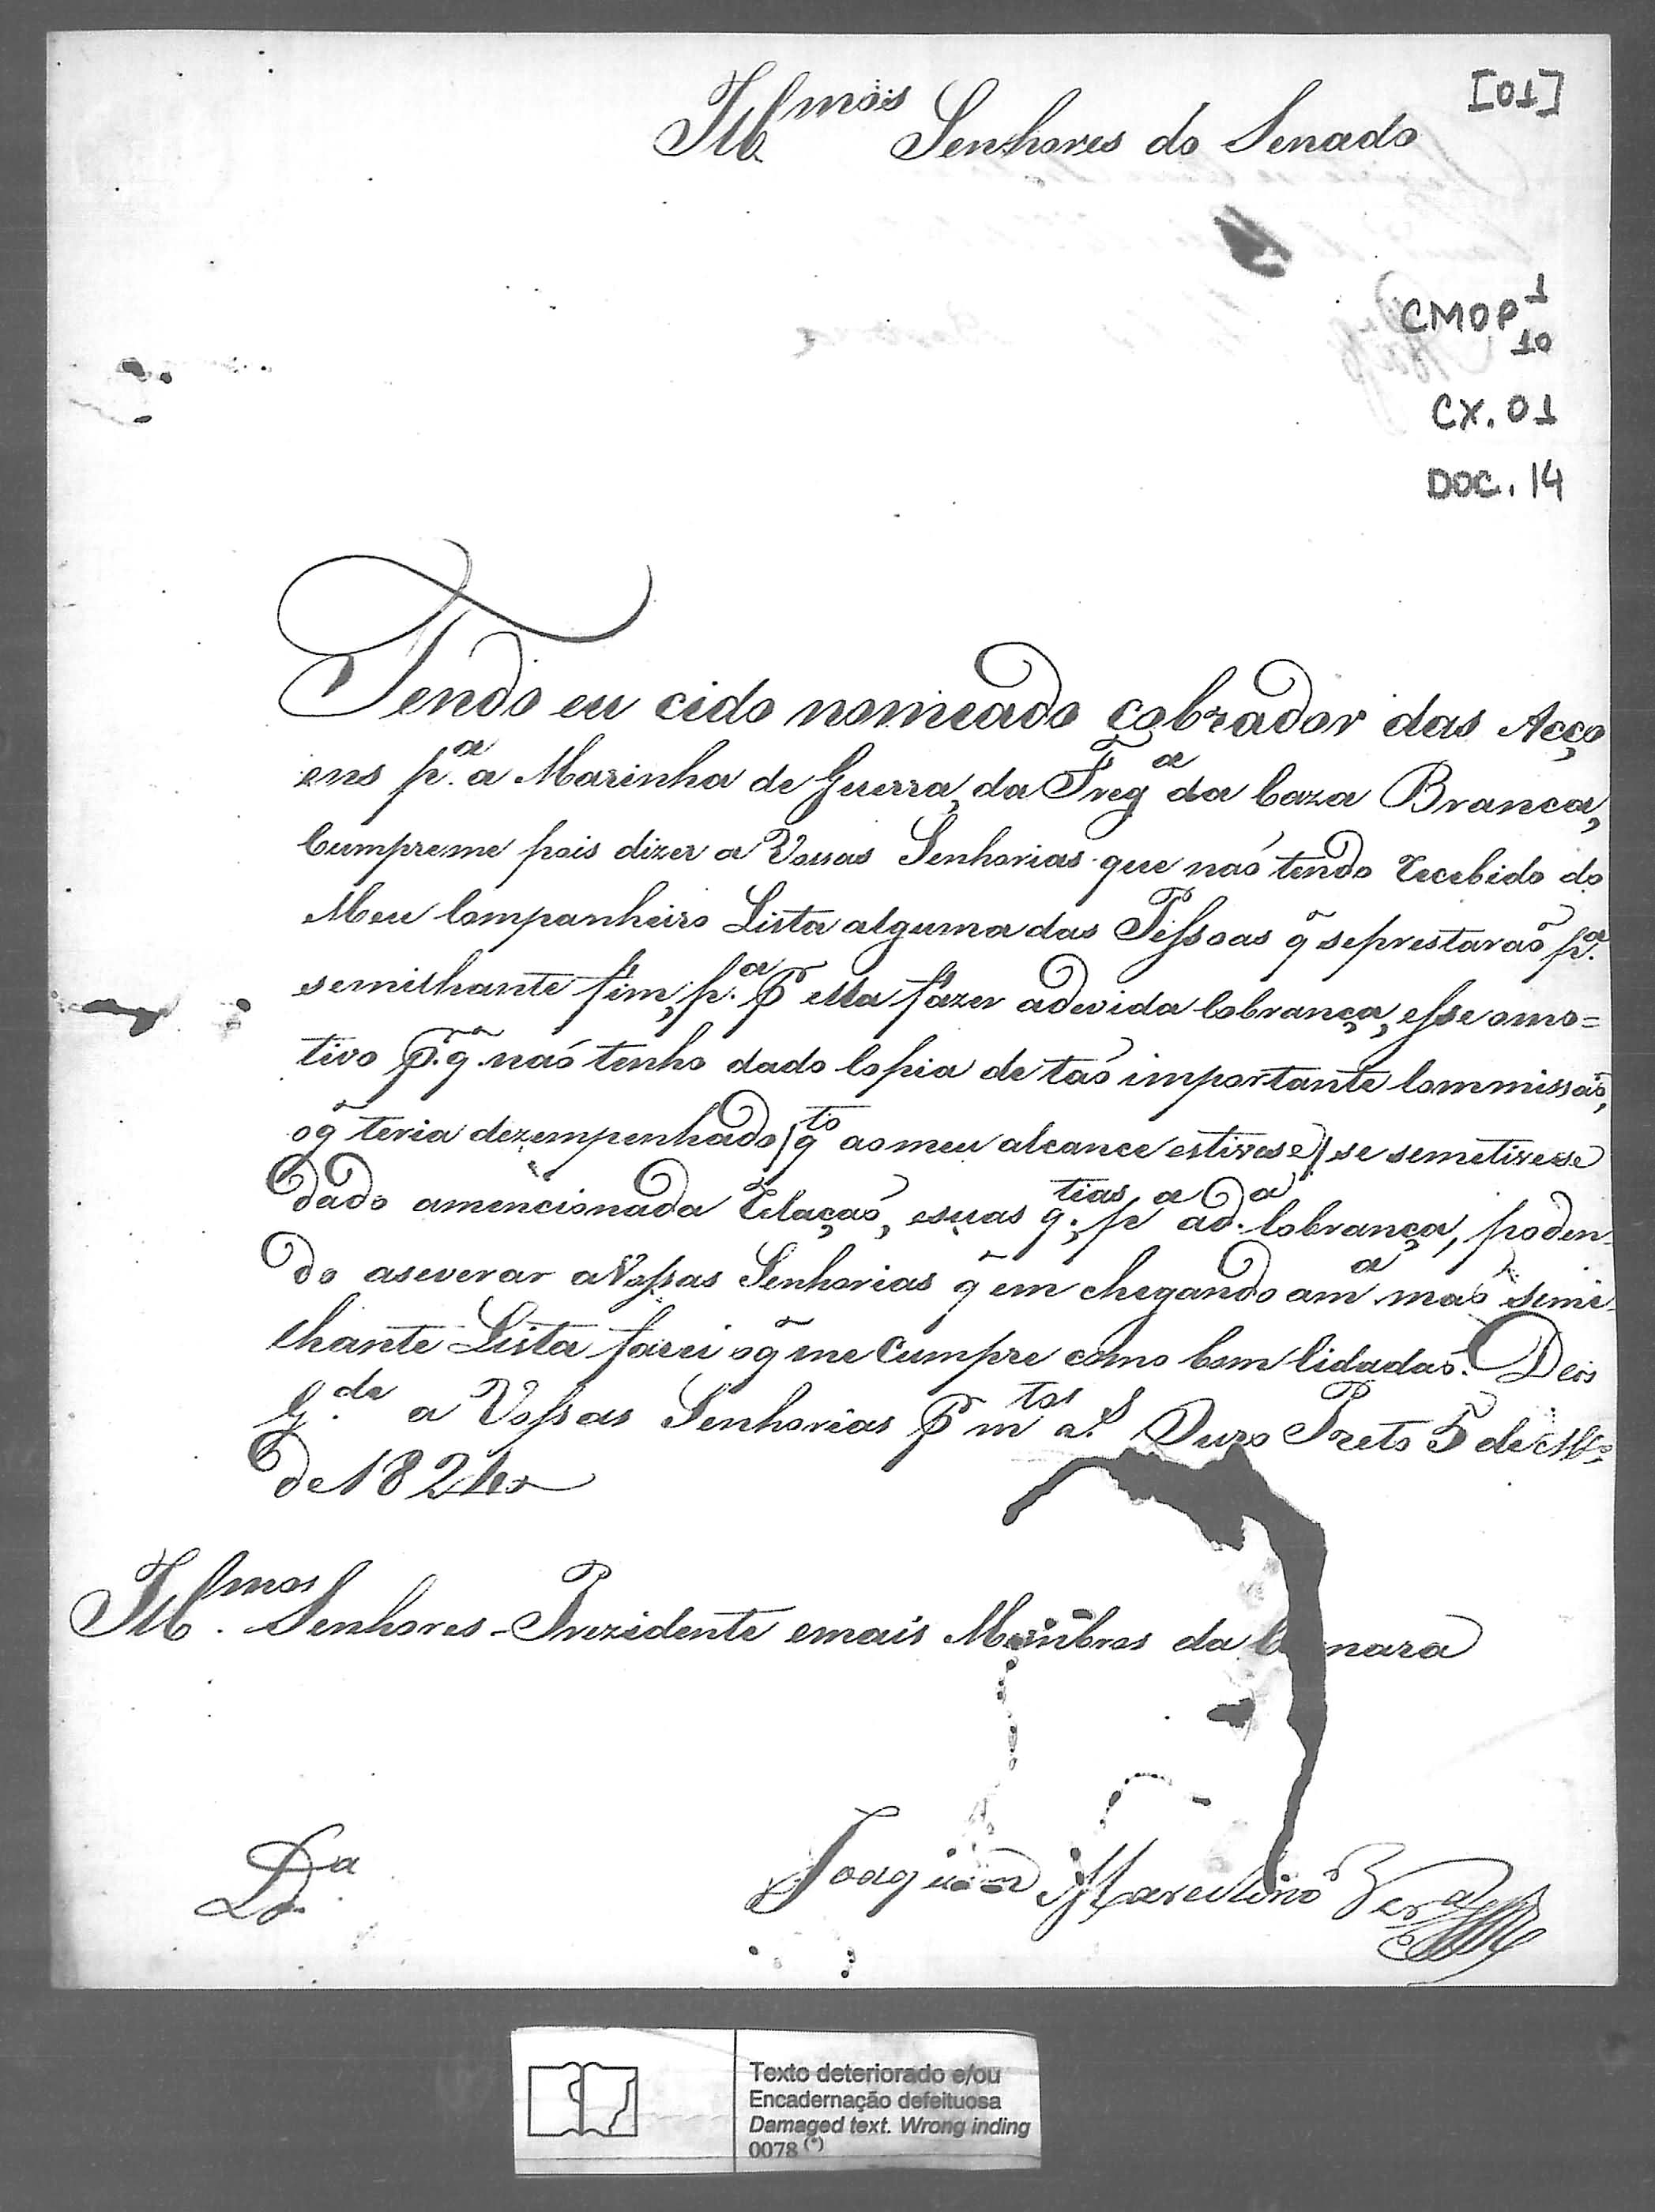 [01]
Ill.mos Senhores do Senado
CMOP 1
10
CX. 01
DOC. 14
Tendo eu cido nomeado cobrador das Acço
ens p.a a Marinha de Guerra, da Freg.a da Caza Branca,
Cumpreme pois dizer a Vossas Senhorias que naõ tendo recebido do
Meu Companheiro Lista alguma das Pessoas q̃ seprestaraõ p.a
semilhante fim, p.a P ella fazer adevida Cobrança, esse omo=
tivo P. q̃. naõ tenho dado Copia de taõ importante Commissaõ,
oq̃ teria dezempenhado (q.to aomeu alcance estivese) se semetivese
dado amencionada relaçaõ, esuas q.tias, p.a a d.a Cobrança, poden-
do aseverar aVossas Senhorias q̃ em chegando am.a maõ simi-
lhante Lista farei oq̃ me Cumpre como bom Cidadaõ. Deos
G.de a Vossas Senhorias P m.tos a.s Ouro Preto 5 de M.ço
de 1824
Ill.mos Senhores Prezidente emais Membros da Camara
D.a
Joaquim Marcelino Per.a
Texto deteriorado e/ou
Encadernação defeituosa
Damaged text. Wrong inding
0078 (*)